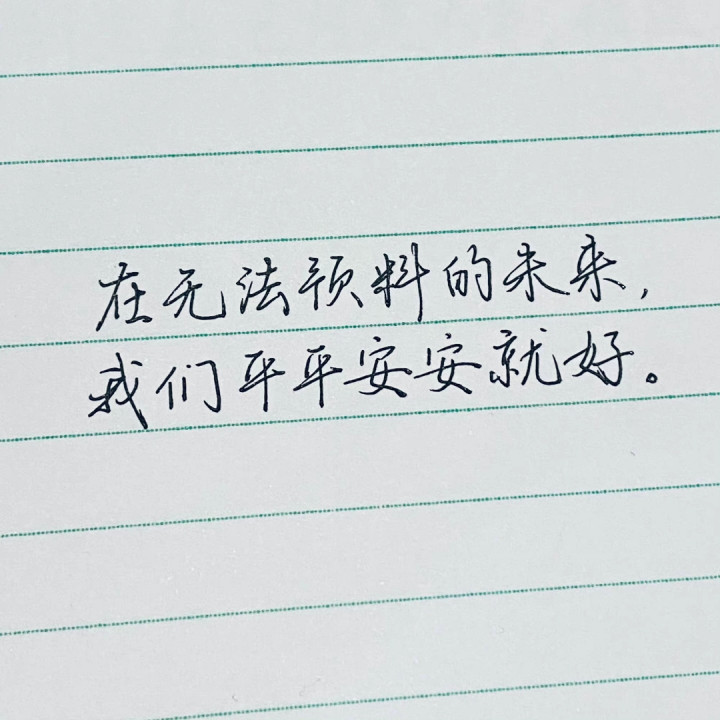 在无法预料的未来,
我们平平安安就好。